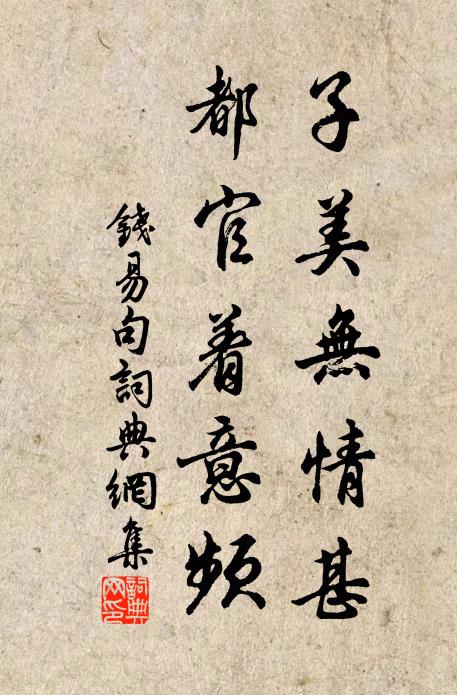 子美無情甚
都官着意頻
錢易句詞典網集
詞典网印